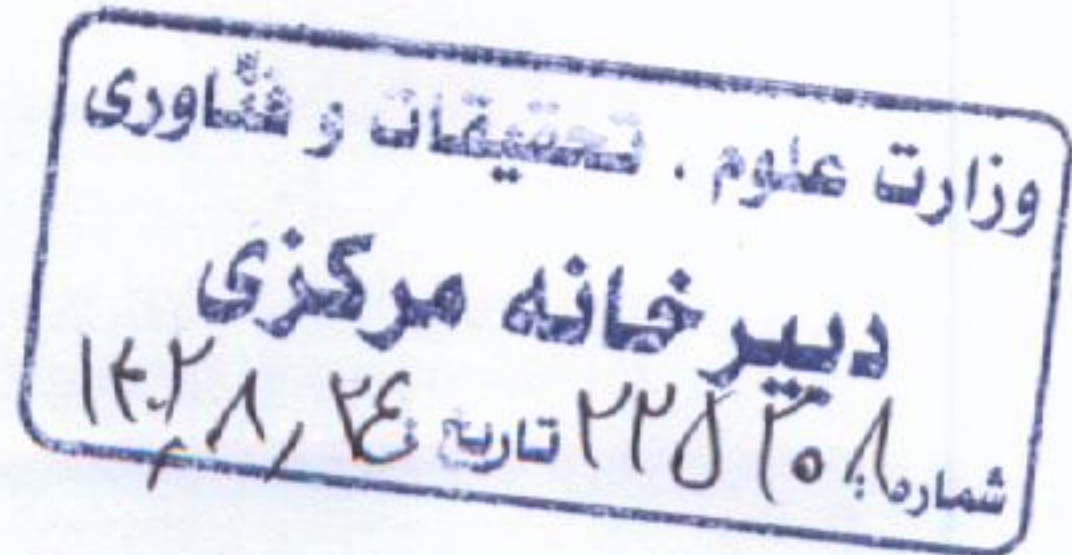 وزارت علوم . تحقیقات و فنّاوری
دبیرخانه مرکزی
شماره: ۲۲۵۳۰۸ تاریخ ۱۴۰۲/۸/۲۴